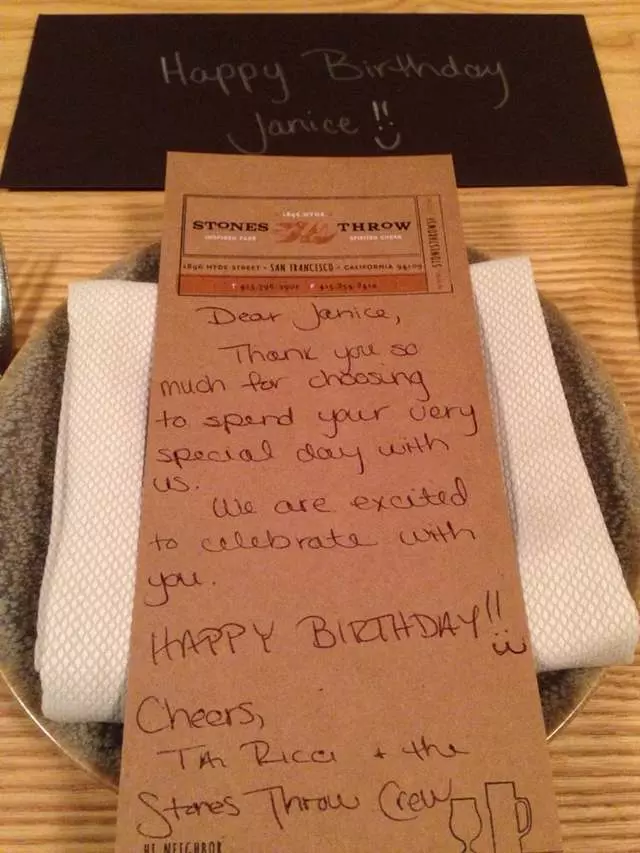 Happy Birthday
Janice!!
1896 HYDE
STONES THROW
INSPIRED FARE SPIRITED CHEER
1896 HYDE STREET • SAN FRANCISCO • CALIFORNIA 94109
Dear Janice,
Thank you so
much for choosing
to spend your very
special day with
us.
We are excited
to celebrate with
you.
HAPPY BIRTHDAY!!
Cheers,
Ricci + the
Stones Throw Crew
HI NEIGHBOR